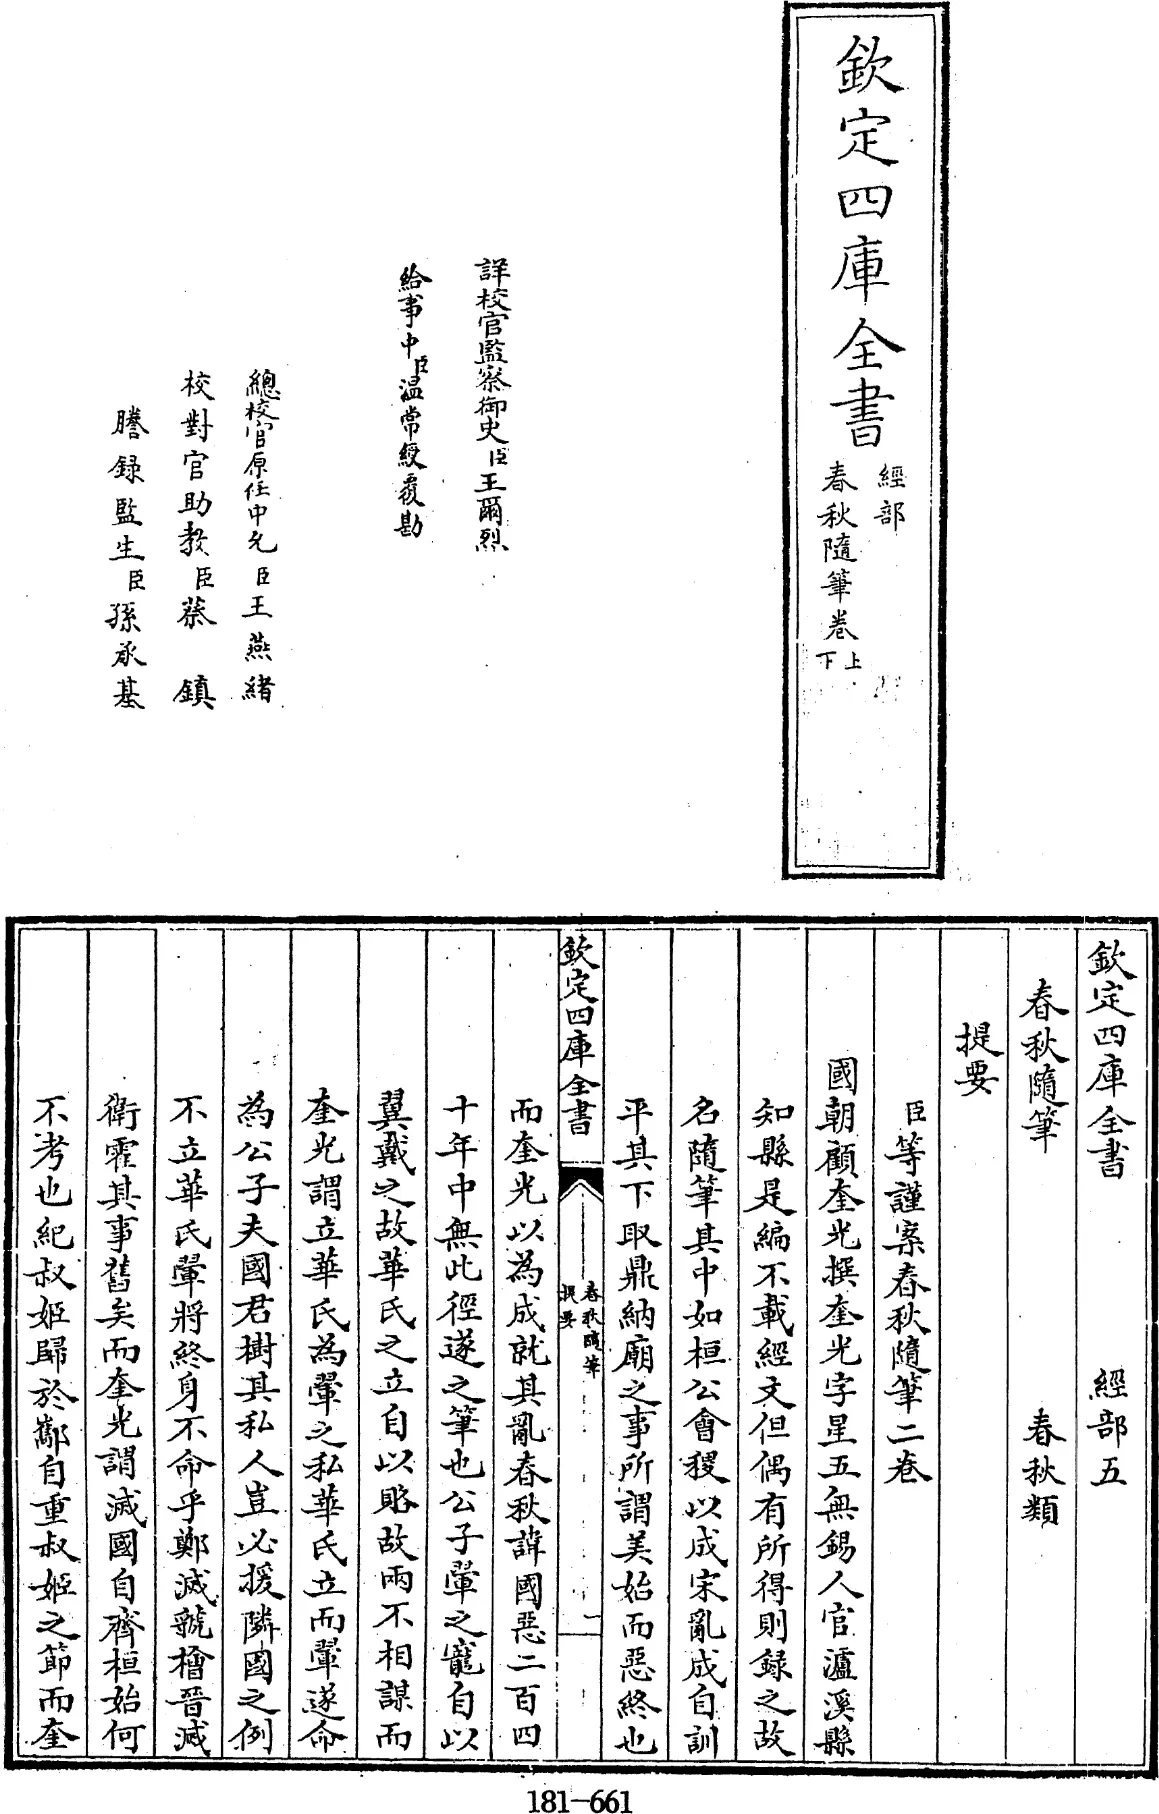 欽定四庫全書
經部
春秋隨筆卷上下
詳校官監察御史臣王爾烈
給事中臣溫常綬覆勘
總校官原任中允臣王燕緒
校對官助教臣蔡鎮
謄録監生臣孫承基
欽定四庫全書 經部五
春秋隨筆 春秋類
提要
臣等謹案春秋隨筆二卷
國朝顧奎光撰奎光字星五無錫人官瀘溪縣
知縣是編不載經文但偶有所得則録之故
名隨筆其中如桓公會稷以成宋亂成自訓
平其下取鼎納廟之事所謂美始而惡終也
欽定四庫全書
春秋隨筆
提要
一
而奎光以為成就其亂春秋諱國惡二百四
十年中無此徑遂之筆也公子翬之寵自以
翼戴之故華氏之立自以賂故兩不相謀而
奎光謂立華氏為翬之私華氏立而翬遂命
為公子夫國君樹其私人豈必援隣國之例
不立華氏翬將終身不命乎鄭滅虢檜晉滅
衛霍其事舊矣而奎光謂滅國自齊桓始何
不考也紀叔姬歸於酅自重叔姬之節而奎
181-661